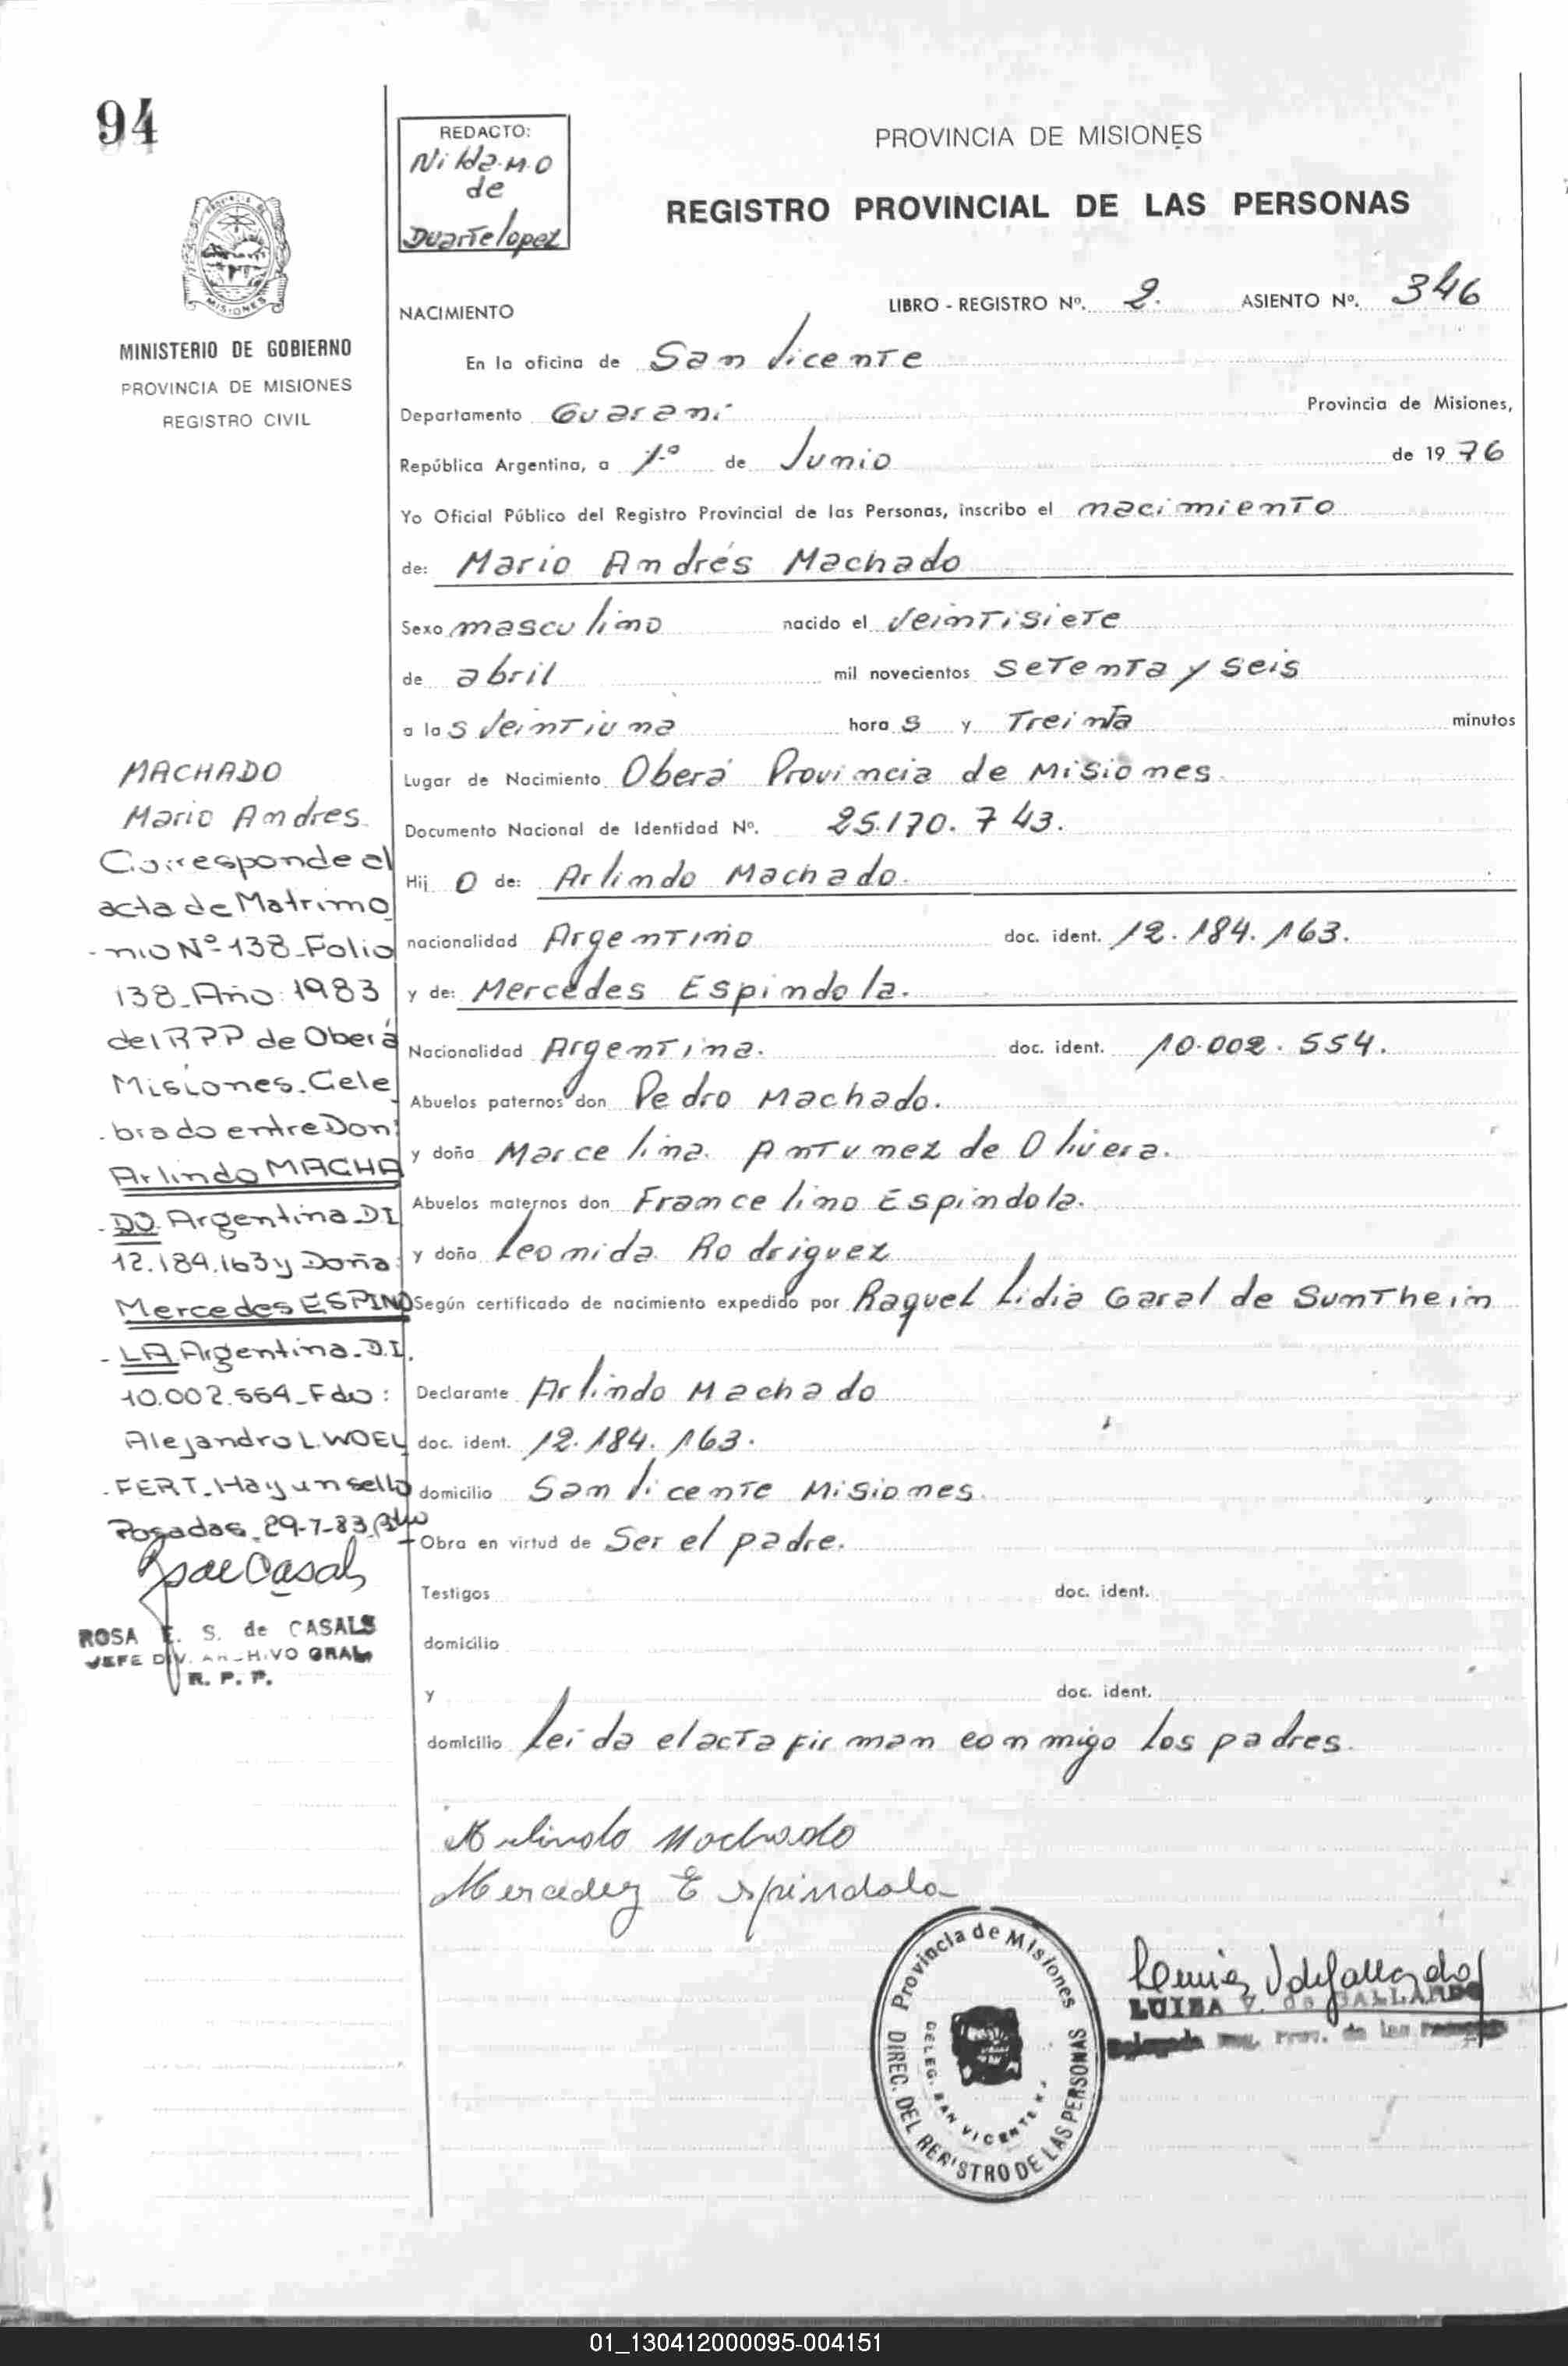 94
MINISTERIO DE GOBIERNO
PROVINCIA DE MISIONES
REGISTRO CIVIL
REDACTO:
Nilda M.O
de
Duarte lopez
PROVINCIA DE MISIONES
REGISTRO PROVINCIAL DE LAS PERSONAS
NACIMIENTO LIBRO - REGISTRO Nº. 2. ASIENTO Nº. 346
En la oficina de San Vicente
Departamento Guaraní Provincia de Misiones,
República Argentina, a 1º de Junio de 1976
Yo Oficial Público del Registro Provincial de las Personas, inscribo el nacimiento
de: Mario Andrés Machado
Sexo masculino nacido el veintisiete
de abril mil novecientos setenta y seis
a las veintiuna horas y treinta minutos
Lugar de Nacimiento Oberá Provincia de Misiones
Documento Nacional de Identidad Nº. 25.170.743.
Hijo de: Arlindo Machado.
nacionalidad Argentino doc. ident. 12.184.163.
y de: Mercedes Espindola.
Nacionalidad Argentina. doc. ident. 10.002.554.
Abuelos paternos don Pedro Machado.
y doña Marcelina Antunez de Olivera.
Abuelos maternos don Francelino Espindola.
y doña Leonida Rodriguez
Según certificado de nacimiento expedido por Raquel Lidia Garal de Suntheim
Declarante Arlindo Machado
doc. ident. 12.184.163.
domicilio San Vicente Misiones.
Obra en virtud de Ser el padre.
Testigos doc. ident.
domicilio
y doc. ident.
domicilio Leida el acta firman conmigo los padres.
Arlindo Machado
Mercedez Espindola
MACHADO
Mario Andres
Corresponde al
acta de Matrimo
-nio Nº 138-Folio
138-Año: 1983
del RPP de Oberá
Misiones. Cele
-brado entre Don:
Arlindo MACHA
-DO Argentina DI
12.184.163 y Doña:
Mercedes ESPINDO
-LA Argentina. D.I.
10.002.554-Fdo:
Alejandro L. WOEL
-FERT. Hay un sello
Posadas, 29-7-83
ROSA E. S. de CASALS
JEFE DIV. ARCHIVO GRAL
R. P. P.
Provincia de Misiones
DIREC. DEL REGISTRO DE LAS PERSONAS
DELEG. SAN VICENTE
LUISA V. de GALLARDO
Delegada Reg. Prov. de las Personas
01_130412000095-004151